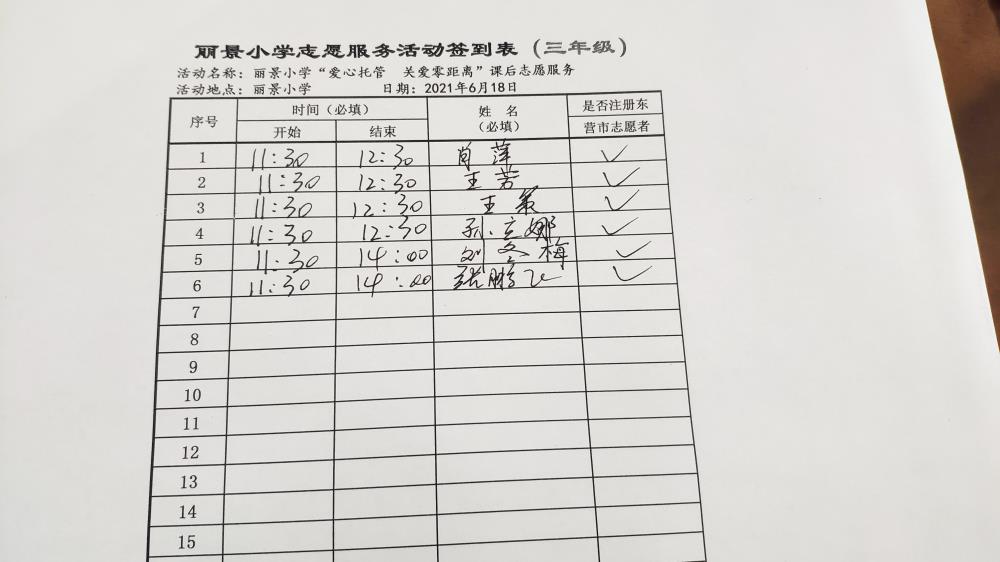 丽景小学志愿服务活动签到表（三年级）
活动名称：丽景小学“爱心托管 关爱零距离”课后志愿服务
活动地点：丽景小学 日期：2021年6月18日
序号 时间（必填） 姓 名 是否注册东
开始 结束 （必填） 营市志愿者
1 11:30 12:30 肖萍 ✓
2 11:30 12:30 王芳 ✓
3 11:30 12:30 王 ✓
4 11:30 12:30 孙立娜 ✓
5 11:30 14:00 刘文梅 ✓
6 11:30 14:00 张鹏飞 ✓
7
8
9
10
11
12
13
14
15